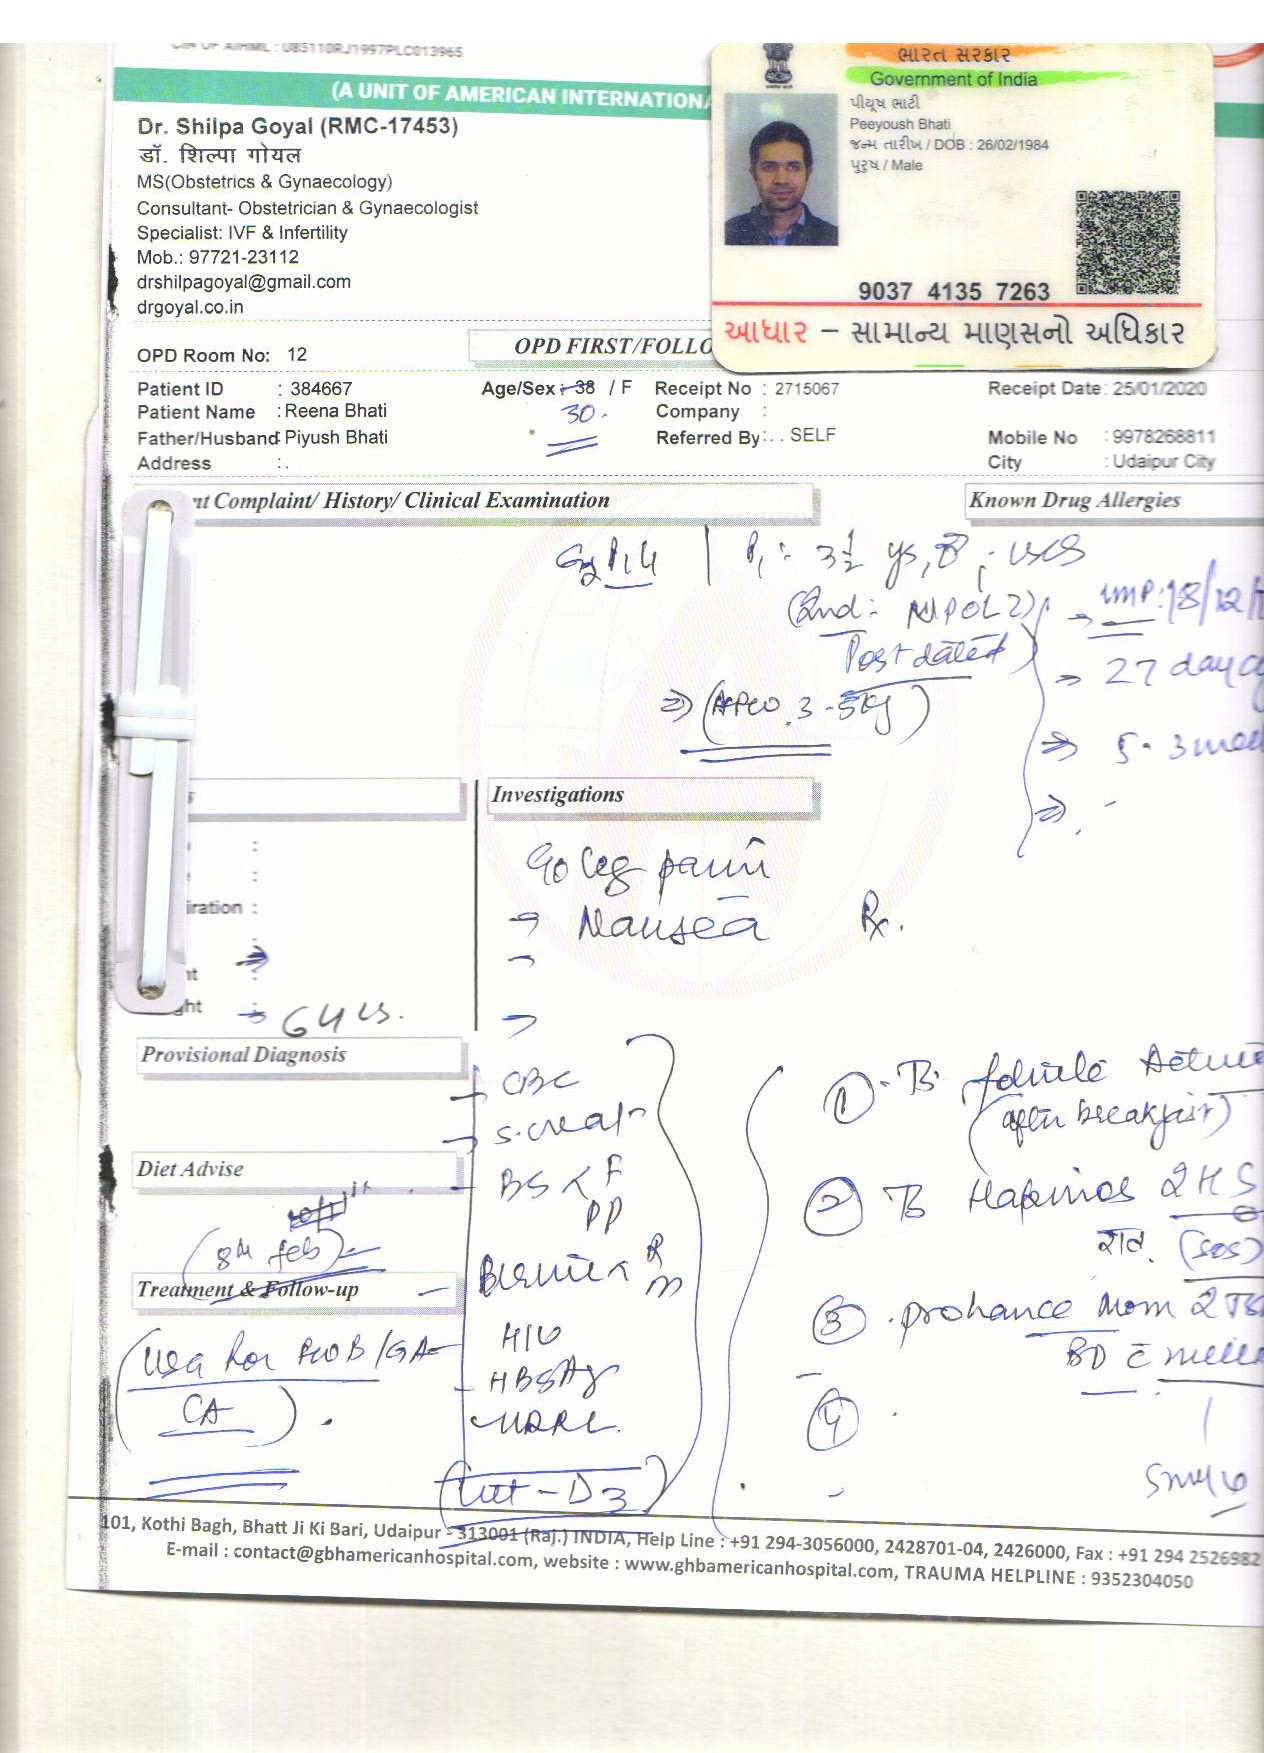 CIN OF AIHML : U85110RJ1997PLC013965
(A UNIT OF AMERICAN INTERNATIONA
Dr. Shilpa Goyal (RMC-17453)
डॉ. शिल्पा गोयल
MS(Obstetrics & Gynaecology)
Consultant- Obstetrician & Gynaecologist
Specialist: IVF & Infertility
Mob.: 97721-23112
drshilpagoyal@gmail.com
drgoyal.co.in
ભારત સરકાર
Government of India
પીયૂષ ભાટી
Peeyoush Bhati
જન્મ તારીખ / DOB : 26/02/1984
પુરુષ / Male
9037 4135 7263
આધાર – સામાન્ય માણસનો અધિકાર
OPD Room No: 12
OPD FIRST/FOLLO
Patient ID : 384667 Age/Sex : 38 / F Receipt No : 2715067 Receipt Date : 25/01/2020
30
Patient Name : Reena Bhati Company :
Father/Husband : Piyush Bhati Referred By : . . SELF Mobile No : 9978268811
Address : . City : Udaipur City
nt Complaint/ History/ Clinical Examination Known Drug Allergies
P1 : 3½ ys,
LMP: 18/12/
(2nd :
Post dated)
27 day
Investigations
leg pain
→ Nausea Rx.
iration :
ght : 64
Provisional Diagnosis
CBC
S. creat
BS < F
PP
Diet Advise
(8th feb)
Treatment & Follow-up
Urine R
M
HIV
HBsAg
VDRL
(Vit-D3)
USG for FWB/GA
CA
① T. folvite Active
(after breakfast)
② T 2 HS
रात (SOS)
③ prohance Mom 2 TS
BD c̄ milk
④
101, Kothi Bagh, Bhatt Ji Ki Bari, Udaipur - 313001 (Raj.) INDIA, Help Line : +91 294-3056000, 2428701-04, 2426000, Fax : +91 294 2526982
E-mail : contact@gbhamericanhospital.com, website : www.ghbamericanhospital.com, TRAUMA HELPLINE : 9352304050